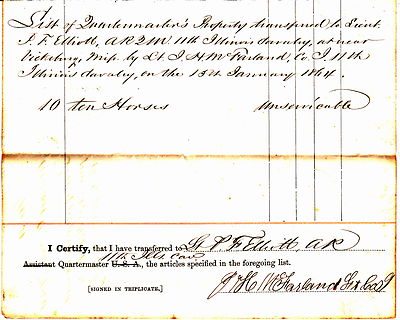 List of Quartermaster's Property transferred to Lieut.
S. F. Elliott, A R Q M 11th Illinois Cavalry, at near
Vicksburg, Miss. by Lt. J. H. McFarland, Co. I, 11th
Illinois Cavalry, on the 15th January 1864.
10 ten Horses Unservicable
I Certify, that I have transferred to Lt S. F. Elliott, A R
11th Ills Cav
Assistant Quartermaster U. S. A., the articles specified in the foregoing list.
J H McFarland Co I
[SIGNED IN TRIPLICATE.]